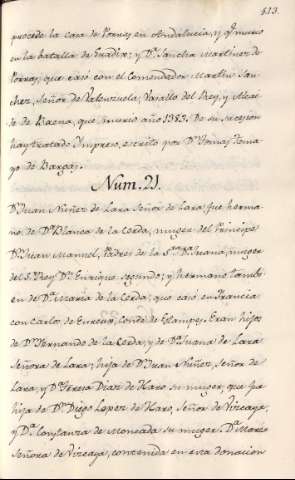 513.
procede la casa de Porres, en Andalucia, y qe. murio
en la batalla de Gradix; y Da. Sancha Martinez de
Porras, que casó con el Comendador Martin San-
chez, Señor de Valenzuela, Vasallo del Rey, y Alcai-
de de Baena, que murio año 1383. De su sucesion
hay tratado Impreso, escrito por Dn. Tomas Tama-
yo de Bargas.
Num. 21.
Dn. Juan Nuñez de Lara Señor de Lara, fue herma-
no, de Da. Blanca de la Cerda, muger del Principe
Dn. Juan Manuel, Padres de la Sra. Rna. Da. Juana, muger
del S. Rey Dn. Enrique segundo; y hermano tambi-
en de Da. Maria de la Cerda, que casó en Francia
con Carlos, de Eureux, Conde de Estampes. Eran hijos
de Dn. Fernando de la Cerda, y de Da. Juana de Lara
Señora de Lara; hija de Dn. Juan Nuñez, Señor de
Lara, y Da. Teresa Diaz de Haro su muger, que fue
hija de Dn. Diego Lopez de Haro, Señor de Vizcaya,
y Da. Constanza de Moncada su muger. Da. Maria
Señora de Vizcaya, contenida en esta donacion